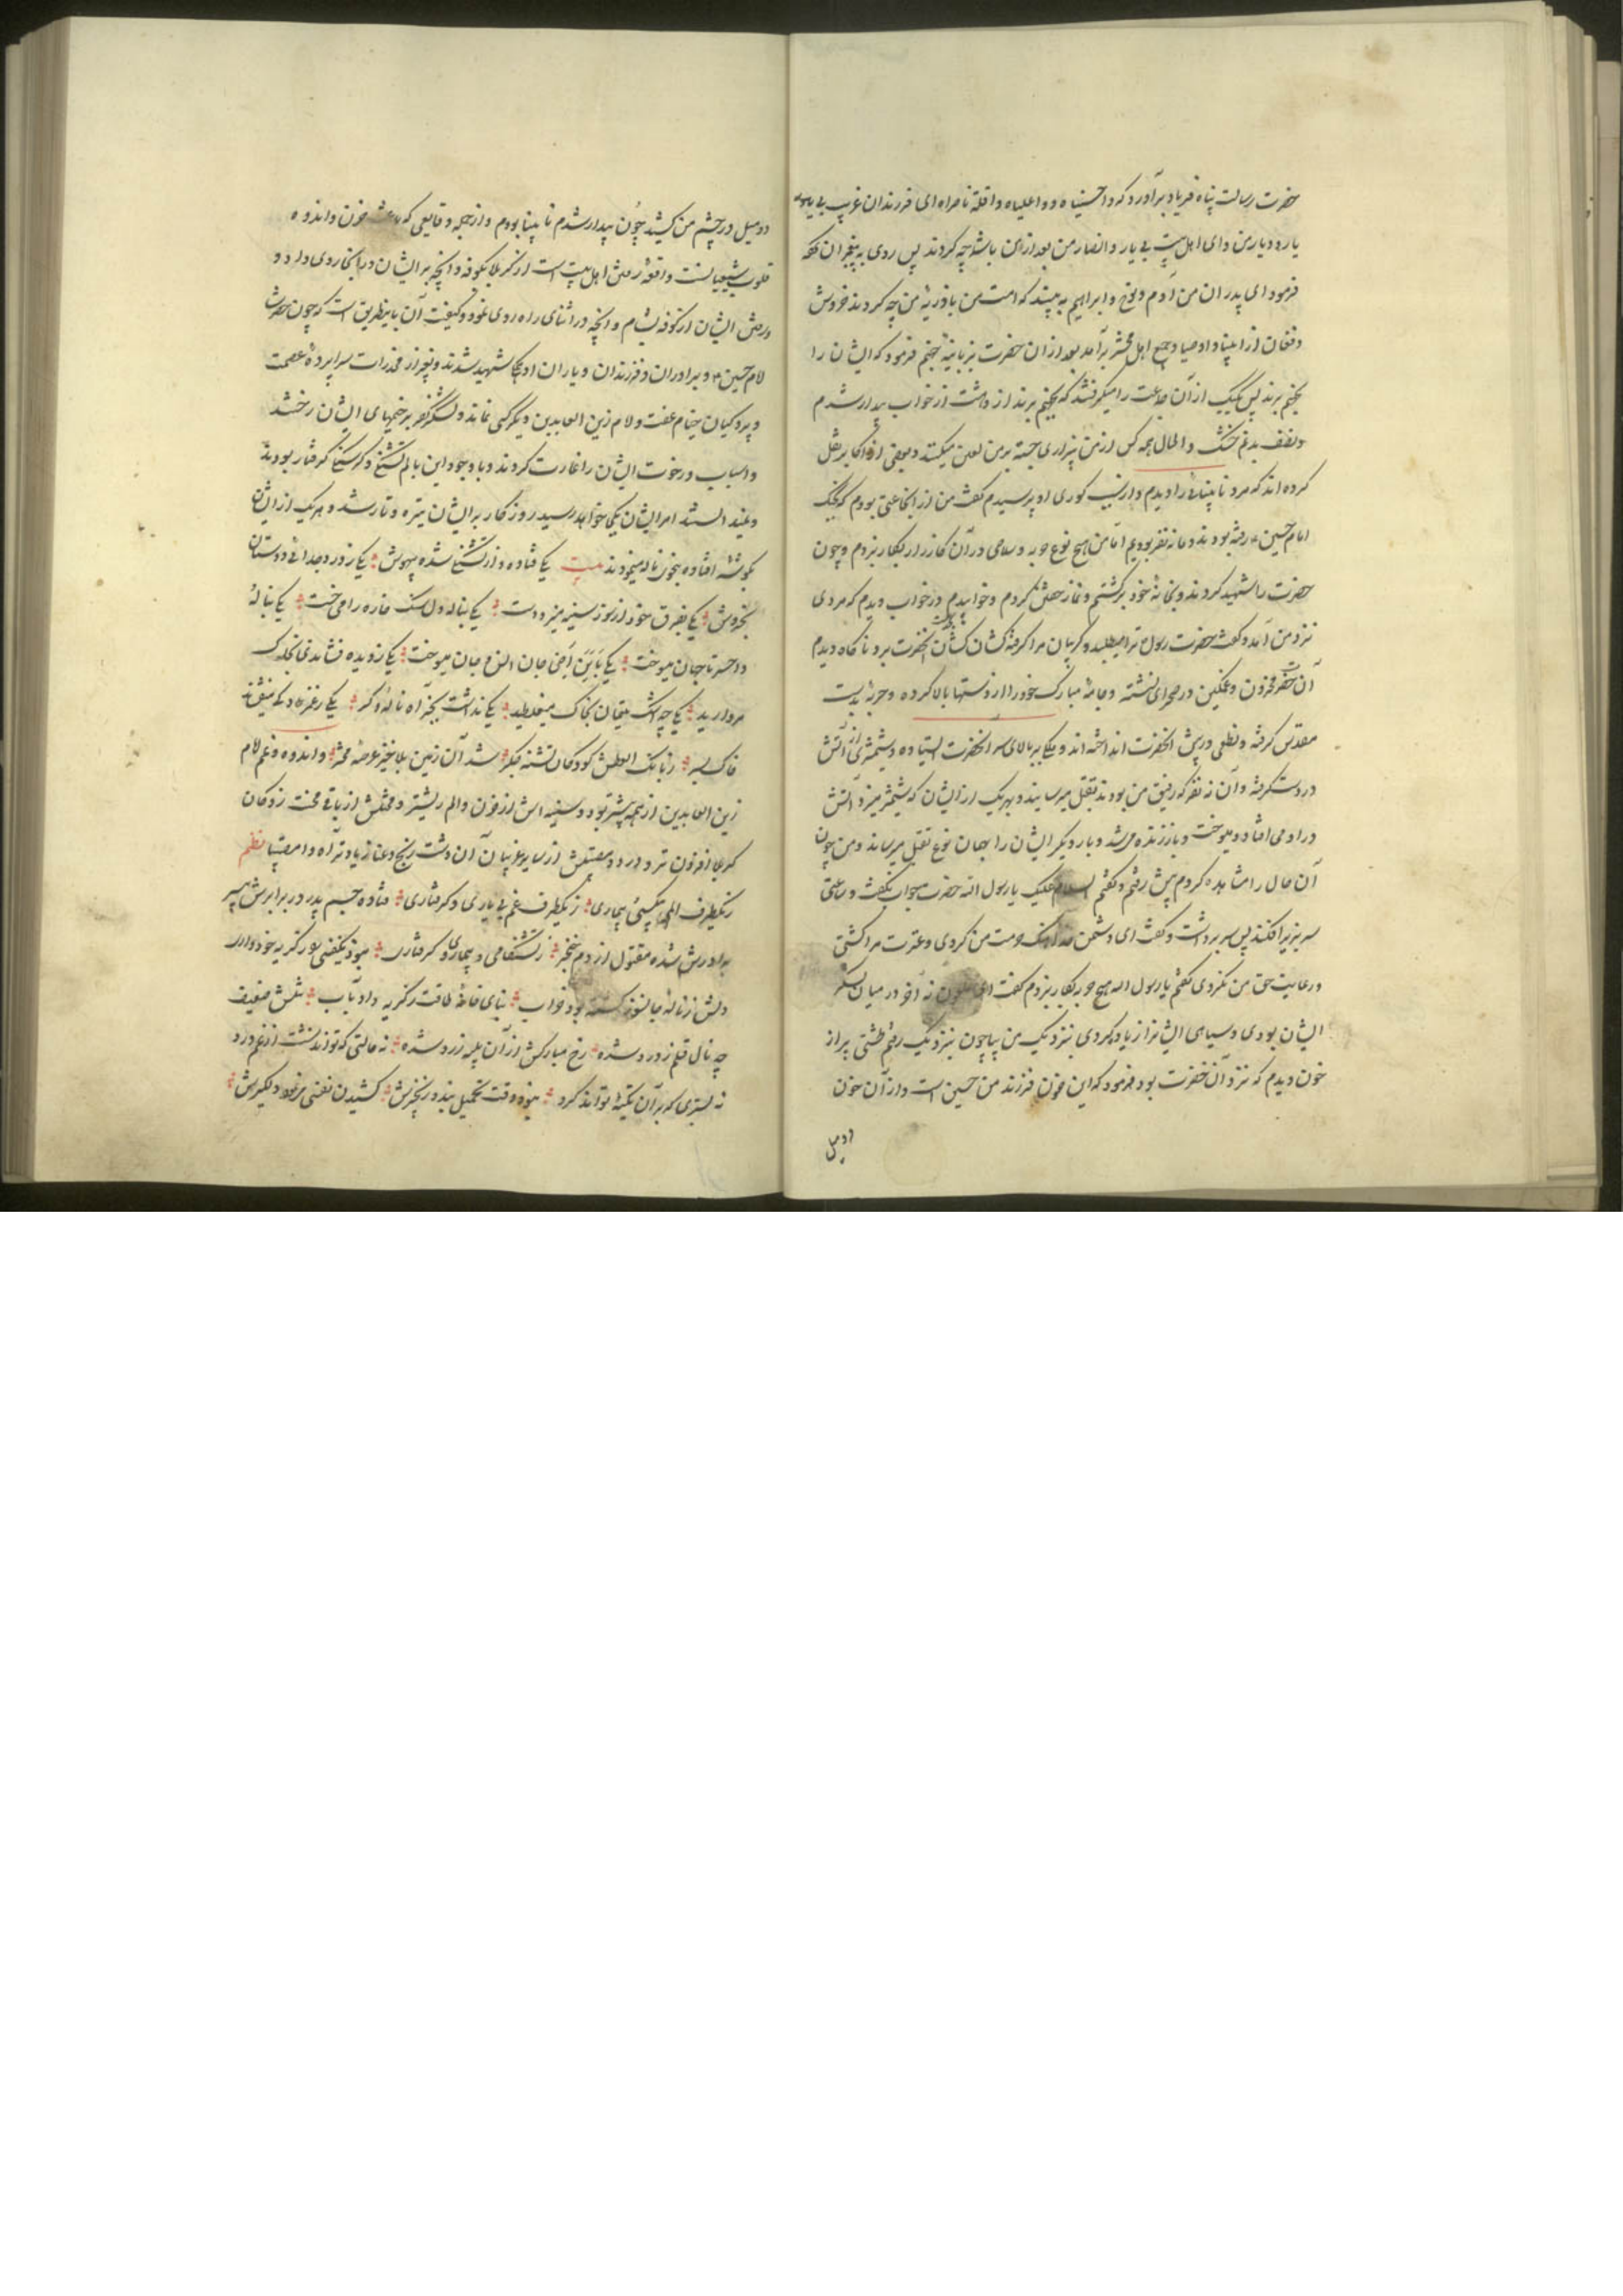 حضرت رسالت پناه فریاد برآورد که واحسیناه و واعلیاه واقلة ناصراه ای فرزندان غریب بی
یار و دیار من و ای اهل بیت بی یار و انصار من بعد از من با شما چه کردند پس روی به پیغمبران کرده
فرمود ای پدران من آدم و نوح و ابراهیم به بینید که امت من با ذریهٔ من چه کردند خروش
و فغان از انبیا و اوصیا و جمیع اهل محشر برآمد بعد از آن حضرت بزبانیهٔ جهنم فرمود که ایشان را
بجهنم برند پس یک یک از آن جماعت را میگرفتند که بجهنم برند از دهشت از خواب بیدار شدم
و نصف بدنم خشک و الحال همه کس از من بیزاری جسته بر من لعن میکنند و بعضی از اکابر نقل
کرده اند که مرد نابینائی را دیدم و از سبب کوری او پرسیدم گفت من از آن جماعتی بودم که بجنگ
امام حسین رفته بودند و ما نه نفر بودیم اما من هیچ نوع حربه و سلاحی در آن کارزار بکار نبردم و چون
حضرت را شهید کردند و بخانهٔ خود برگشتم و نماز خفتن کردم و خوابیدم در خواب دیدم که مردی
نزد من آمد و گفت حضرت رسول ترا میطلبد و گریبان مرا گرفته کشان کشان بخدمت آنحضرت برد ناگاه دیدم
آن حضرت محزون و غمگین در صحرای نشسته و جامهٔ مبارک خود را از دستها بالا کرده و حربهٔ بدست
مقدس گرفته و نطعی در پیش آنحضرت انداخته اند و ملکی بر بالای سر آنحضرت ایستاده و شمشیری از آتش
در دست گرفته و آن نه نفر که رفیق من بودند بقتل میرسانید و بهر یک از ایشان که شمشیر میزد آتش
در او می افتاد و میسوخت و باز زنده می شد و بار دیگر ایشان را بهمان نوع بقتل میرساند و من چون
آن حال را مشاهده کردم پیش رفتم و گفتم السلام علیک یا رسول الله حضرت جواب نگفت و ساعتی
سر بزیر افکند پس سر برداشت و گفت ای دشمن خدا هتک حرمت من کردی و عترت مرا کشتی
و رعایت حق من نکردی گفتم یا رسول الله هیچ حربه بکار نبردم گفت ای ملعون نه آخر در میان لشکر
ایشان بودی و سیاهی ایشان را زیاد کردی نزدیک من بیا چون نزدیک رفتم طشتی پر از
خون دیدم که نزد آن حضرت بود فرمود که این خون فرزند من حسین است و از آن خون
دو میل
دو میل در چشم من کشید چون بیدار شدم نابینا بودم و از جمله وقایعی که باعث حزن و اندوه
قلوب شیعیانست واقعهٔ رفتن اهل بیت است از کربلا بکوفه و آنچه بر ایشان در آنجا روی داد و
رفتن ایشان از کوفه بشام و آنچه در اثنای راه روی نمود و کیفیت آن باینطریق است که چون حضرت
امام حسین و برادران و فرزندان و یاران او همگی شهید شدند و بغیر از مخدرات سراپردهٔ عصمت
و پردگیان خیام عفت و امام زین العابدین دیگر کسی نماند و لشکر کفر بر خیمهای ایشان ریختند
و اسباب و رخوت ایشان را غارت کردند و با وجود این بالم تشنگی و گرسنگی گرفتار بودند
و نمیدانستند امر ایشان بکجا خواهد رسید روزگار بر ایشان تیره و تار شد و هر یک از ایشان
بگوشه افتاده بخون ناله مینمودند بیت یکی فتاده و از تشنگی شده بیهوش یکی ز درد جدائی دوستان
بخروش یکی بفرق خود از سوز سینه میزد دست یکی بناله دل سنگ خاره را می خست یکی بنالهٔ
واحسرتا جهان میسوخت یکی جان میسوخت یکی ز دیده فشاندی بخاک
مروارید یکی چه اشک یتیمان بخاک میغلطید یکی نداشت بجز آه و نالهٔ دگر یکی
خاک بسر ز بانگ العطش کودکان تشنه جگر شد آن زمین بلاخیز عرصهٔ محشر و اندوه و غم امام
زین العابدین از همه بیشتر بود و سینه اش از حزن و الم ریشتر و محنتش از باقی محنت زدگان
کربلا افزون تر و درد و مصیبتش از سایر غریبان آن دشت رنج و عنا زیاده تر آه وا مصیبتا نظم
ز یکطرف الم بیکسی و بیماری ز یکطرف غم بی یاری و گرفتاری فتاده جسم پدر در برابرش بی سر
برادرش شده مقتول از دم خنجر ز تشنکامی و بیماری و گرفتاری
دلش ز نالهٔ جانسوز خسته بود خواب بنای خانهٔ طاقت ز گریه داده بآب تنش ضعیف
چه نال قلم ز درد شده رخ مبارکش از آن زرد شده نه حالتی که تواند نشست از غم درد
نه بستری که بر آن تکیهٔ تواند کرد نبوده وقت تحمل ببند و زنجیرش کشیدن نفسی